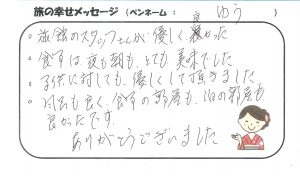 旅の幸せメッセージ (ペンネーム : ゆう )
。旅館のスタッフさんが優しく良かった
。食事は夜も朝も、とても美味でした
。子供に対しても、優しくして頂きました
。風呂も良く、食事の部屋も、泊の部屋も
良かったです。
ありがとうございました